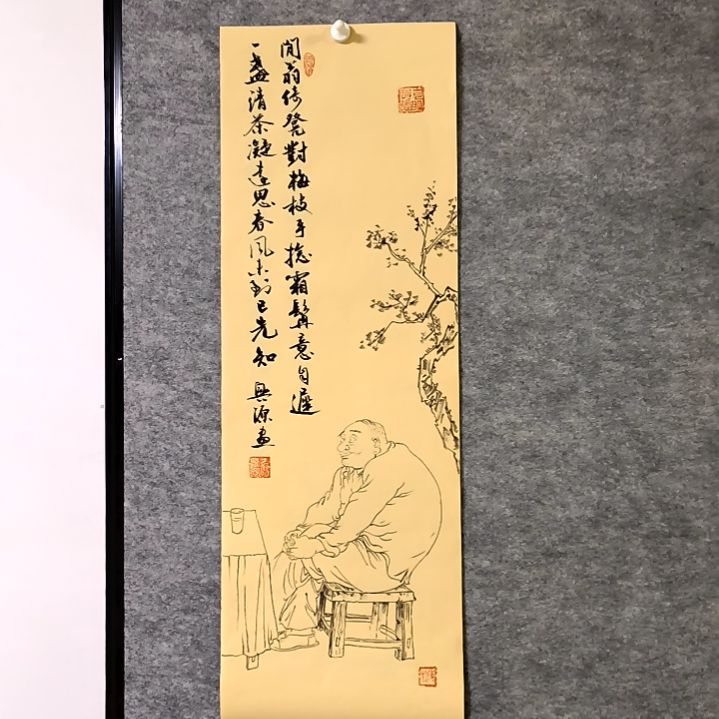 閒翁倚凳對梅枝手捻霜髯意自遲
一盞清茶凝遠思春風未到已先知 興源畫